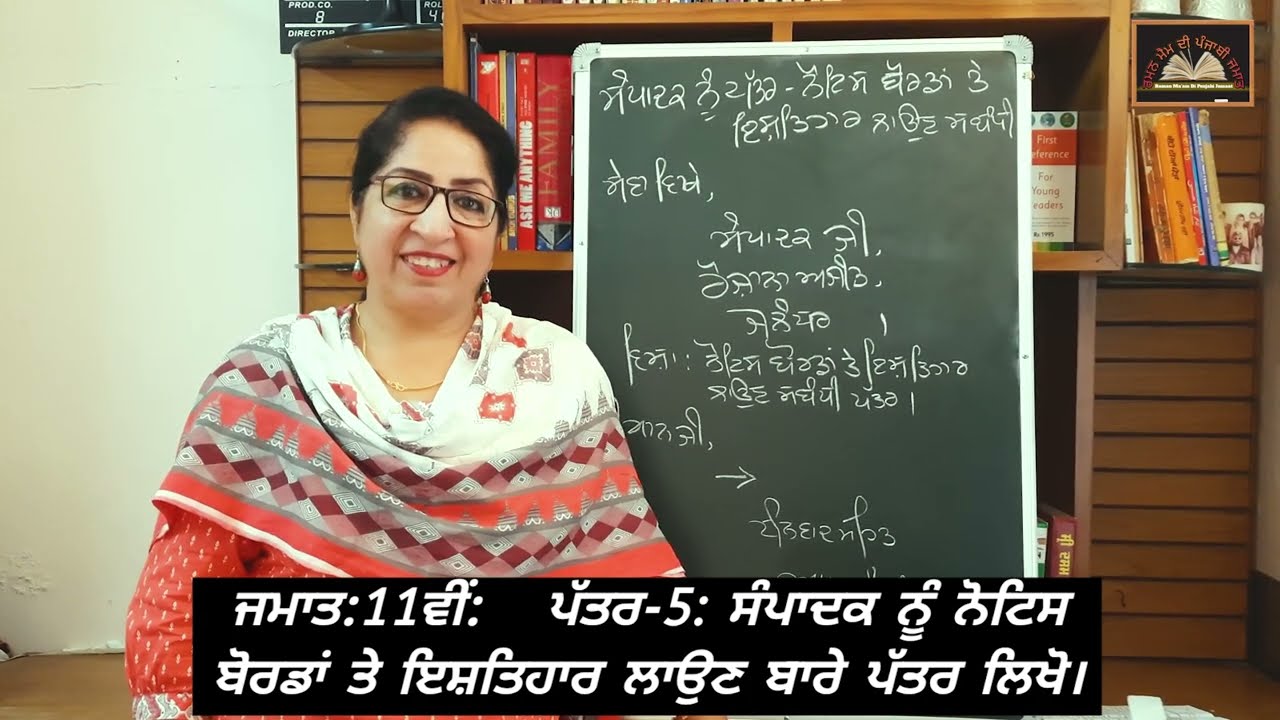 PROD.CO.
8
DIRECTOR
ROLL
ਰਮਨ ਮੈਮ ਦੀ ਪੰਜਾਬੀ ਜਮਾਤ
Raman Ma'am Di Punjabi Jamaat
ASK ME ANYTHING
FAMILY
First
Reference
For
Young
Readers
Rs 1995
ਸੰਪਾਦਕ ਨੂੰ ਪੱਤਰ - ਨੋਟਿਸ ਬੋਰਡਾਂ ਤੇ
ਇਸ਼ਤਿਹਾਰ ਲਾਉਣ ਸਬੰਧੀ
ਸੇਵਾ ਵਿਖੇ,
ਸੰਪਾਦਕ ਜੀ,
ਰੋਜ਼ਾਨਾ ਅਜੀਤ,
ਜਲੰਧਰ ।
ਵਿਸ਼ਾ: ਨੋਟਿਸ ਬੋਰਡਾਂ ਤੇ ਇਸ਼ਤਿਹਾਰ
ਲਾਉਣ ਸਬੰਧੀ ਪੱਤਰ ।
ਮਾਨ ਜੀ,
→
ਧੰਨਵਾਦ ਸਹਿਤ
ਜਮਾਤ:11ਵੀਂ: ਪੱਤਰ-5: ਸੰਪਾਦਕ ਨੂੰ ਨੋਟਿਸ
ਬੋਰਡਾਂ ਤੇ ਇਸ਼ਤਿਹਾਰ ਲਾਉਣ ਬਾਰੇ ਪੱਤਰ ਲਿਖੋ।